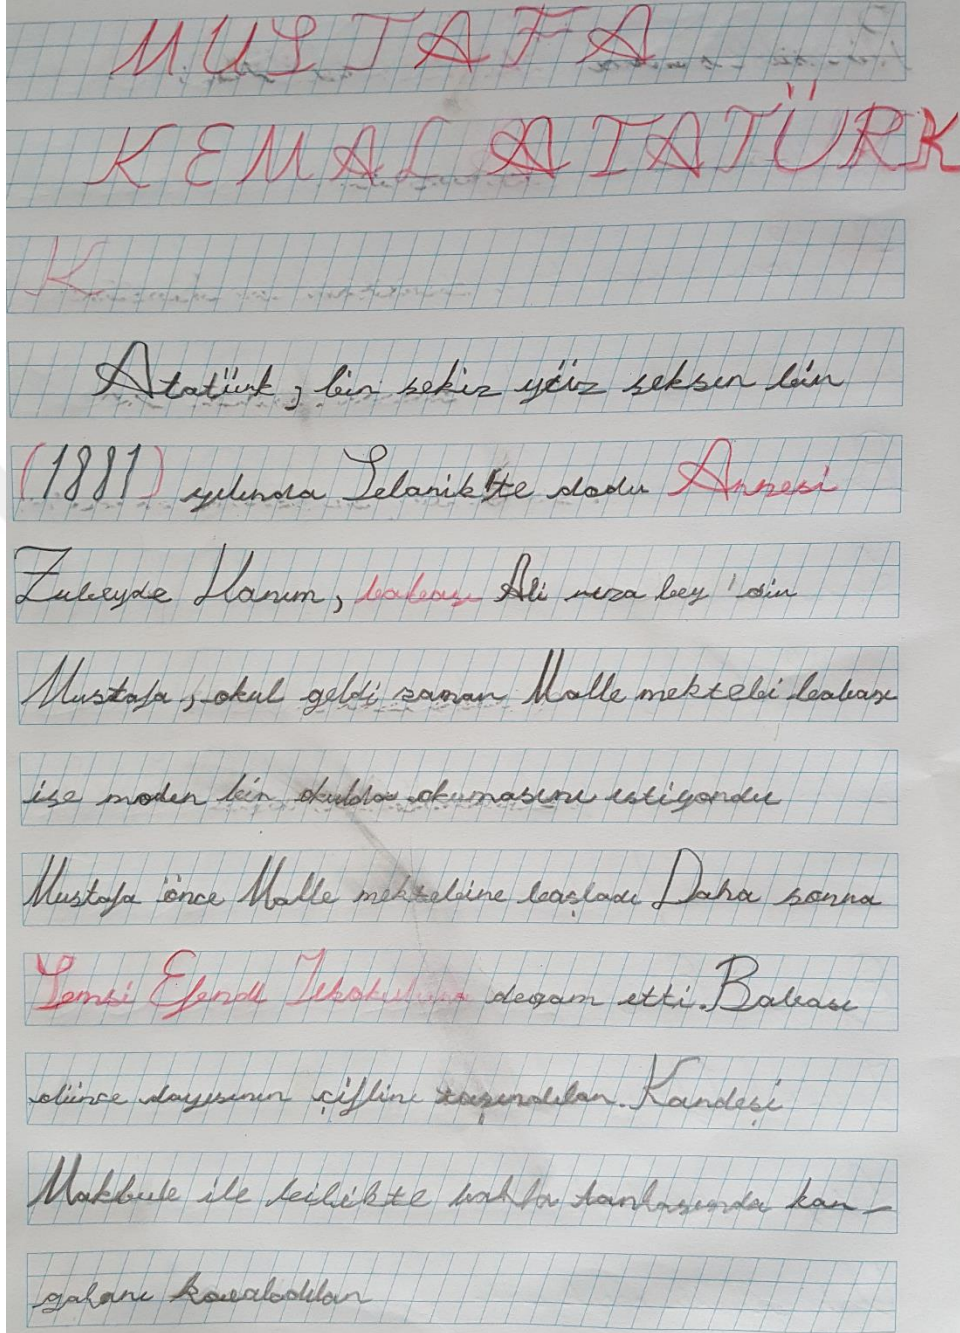 MUSTAFA
KEMAL ATATÜRK
K
Atatürk, bin sekiz yüz seksen bin
(1881) yılında Selanik'te dodu Annesi
Zubeyde Hanım, babası Ali rıza bey 'dir
Mustafa, okul geldi zaman Malle mektebi babası
ise modern bir okulda okumasını istiyordu
Mustafa önce Malle mektebine başladı Daha sonra
Şemsi Efendi İlkokuluna devam etti. Babası
ölünce dayısının çiflini taşındılar. Kardeşi
Makbule ile bilikte bakla tarlasında kar-
gaları kovaladılar